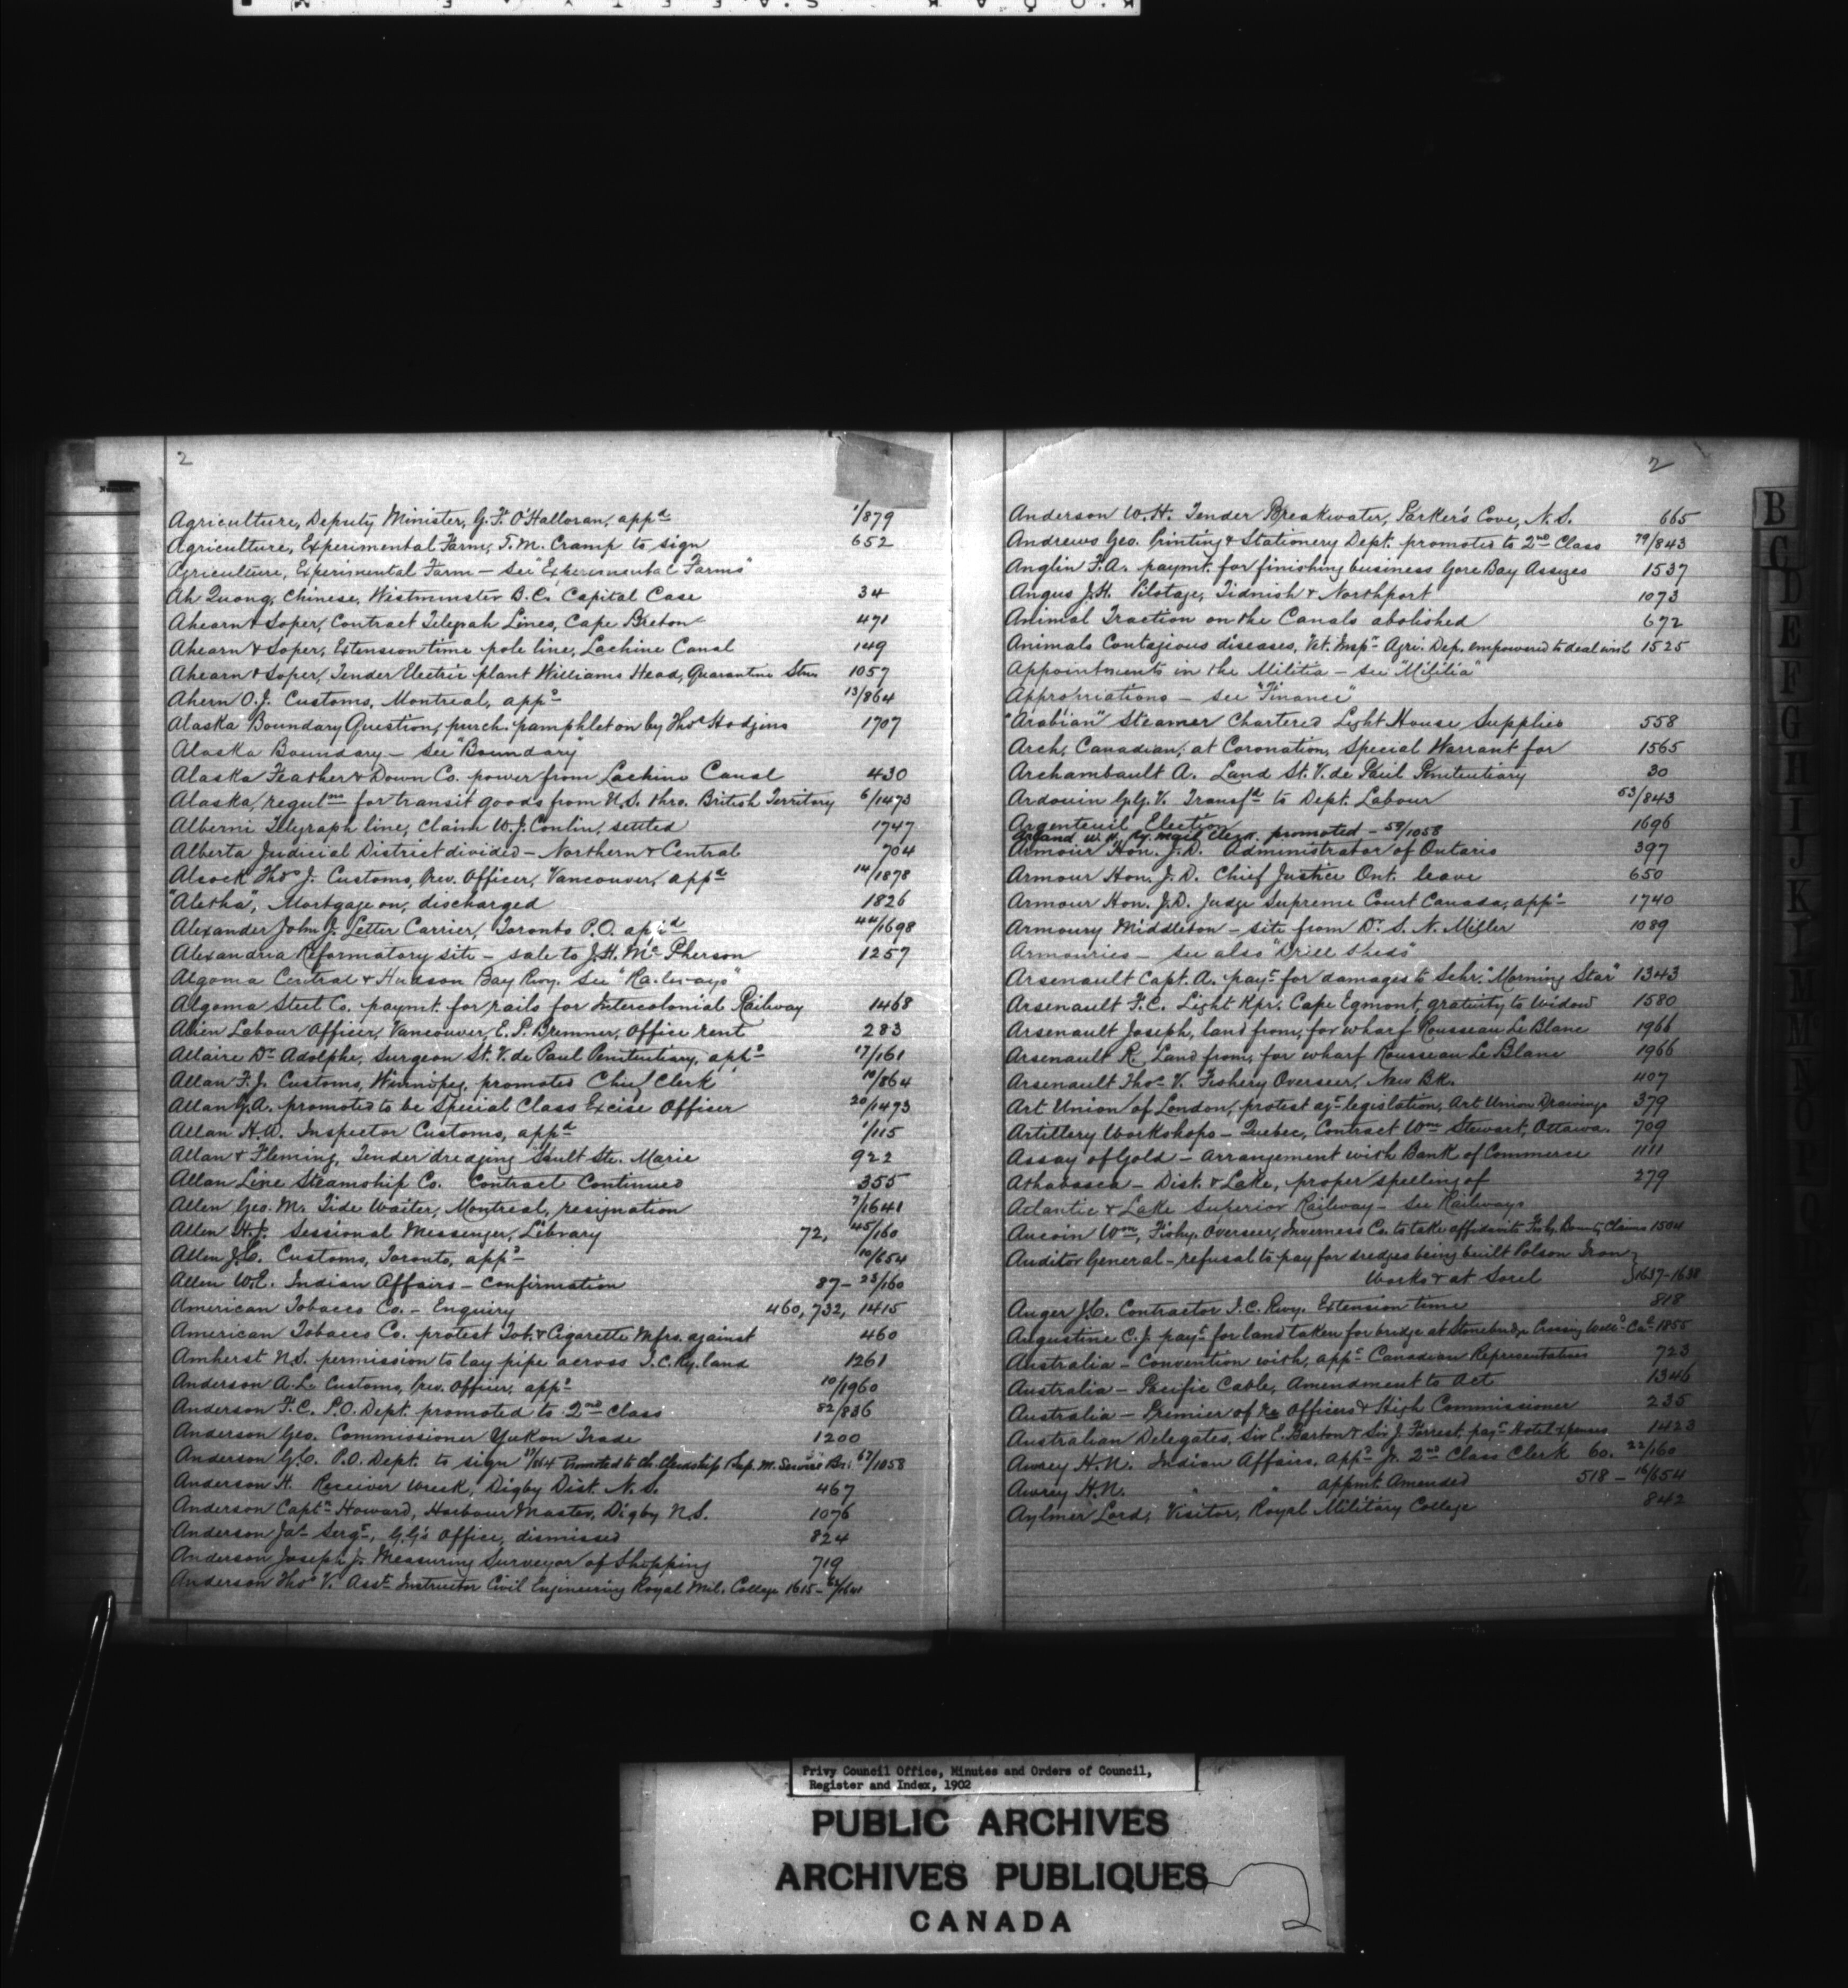 2
Agriculture, Deputy Minister, G.F. O'Halloran, appd 1/879
Agriculture, Experimental Farm, T.M. Cramp to sign 652
Agriculture, Experimental Farm – see "Experimental Farms"
Ah Quong, Chinese, Westminster B.C. Capital Case 34
Ahearn & Soper, Contract Telegrah Lines, Cape Breton 471
Ahearn & Soper, Extension time pole line, Lachine Canal 149
Ahearn & Soper, Tender Electric plant Williams Head, Quarantine Stn 1057
Ahern O.J. Customs, Montreal, appd 13/864
Alaska Boundary Question, purch. pamphlet on by Thos Hodgins 1707
Alaska Boundary – see "Boundary"
Alaska Feather & Down Co. power from Lachine Canal 430
Alaska, regulns for transit goods from U.S. thro. British Territory 6/1473
Alberni Telegraph line, claim W.J. Conlin, settled 1747
Alberta Judicial District divided – Northern & Central 704
Alcock Thos J. Customs, Prev. Officer, Vancouver, appd 14/1878
"Aletha", Mortgage on, discharged 1826
Alexander John J. Letter Carrier, Toronto P.O. apptd 44/1698
Alexandria Reformatory site – sale to J.H. McPherson 1257
Algoma Central & Hudson Bay Rwy. see "Railways"
Algoma Steel Co. paymt. for rails for Intercolonial Railway 1468
Alien Labour Officer, Vancouver, E.P. Bremner, Office rent 283
Allaire Dr Adolphe, Surgeon St. V. de Paul Penitentiary, appd 17/161
Allan F.J. Customs, Winnipeg, promoted Chief Clerk 10/864
Allan G.A. promoted to be Special Class Excise Officer 20/1473
Allan H.W. Inspector Customs, appd 1/115
Allan & Fleming, Tender dredging Sault Ste. Marie 922
Allan Line Steamship Co. Contract Continued 355
Allen Geo. M. Tide Waiter, Montreal, resignation 7/1641
Allen H.J. Sessional Messenger, Library 72, 45/160
Allen J.C. Customs, Toronto, appd 10/654
Allen W.E. Indian Affairs – Confirmation 87 – 23/160
American Tobacco Co. – Enquiry 460, 732, 1415
American Tobacco Co. protest Tob. & Cigarette Mfrs. against 460
Amherst N.S. permission to lay pipe across I.C. Ry. land 1261
Anderson A.L. Customs, Prev. Officer, appd 10/1960
Anderson F.C. P.O. Dept. promoted to 2nd Class 82/836
Anderson Geo. Commissioner Yukon Trade 1200
Anderson G.C. P.O. Dept. to sign 17/864 Promoted to Ch. Clerkship & Sup. M. Service Br. 67/1058
Anderson H. Receiver Wreck, Digby Dist. N.S. 467
Anderson Captn Howard, Harbour Master, Digby N.S. 1076
Anderson Jas Sergt, G.G's Office, dismissed 824
Anderson Joseph J. Measuring Surveyor of Shipping 719
Anderson Thos V. Asst Instructor Civil Engineering Royal Mil. College 1615 –
2
Anderson W.H. Tender Breakwater, Parker's Cove, N.S. 665
Andrews Geo. Printing & Stationery Dept. promoted to 2nd Class 79/843
Anglin F.A. paymt. for finishing business Gore Bay Assizes 1537
Angus J.H. Pilotage, Tidnish & Northport 1073
Animal Traction on the Canals abolished 672
Animals Contagious diseases, Vet. Inspr Agri. Dep. empowered to deal with 1525
Appointments in the Militia – see "Militia"
Appropriations – see "Finance"
"Arabian" Steamer Chartered Light House Supplies 558
Arch, Canadian, at Coronation, Special Warrant for 1565
Archambault A. Land St. V. de Paul Penitentiary 30
Ardouin G.G.V. Transfd to Dept. Labour 53/843
Argenteuil Election 1696
Arland W.H. Ry. Mail Clerk promoted – 59/1058
Armour Hon. J.D. Administrator of Ontario 397
Armour Hon. J.D. Chief Justice Ont. leave 650
Armour Hon. J.D. Judge Supreme Court Canada, appd 1740
Armoury Middleton – site from Dr. S.N. Miller 1089
Armouries – see also "Drill Sheds"
Arsenault Capt. A. payt for damages to Schr. "Morning Star" 1343
Arsenault F.C. Light Kpr. Cape Egmont, gratuity to Widow 1580
Arsenault Joseph, land from, for wharf Rousseau Le Blanc 1966
Arsenault R. Land from, for wharf Rousseau Le Blanc 1966
Arsenault Thos V. Fishery Overseer, New Bk. 407
Art Union of London, protest agt legislation, Art Union Drawings 379
Artillery Workshops – Quebec, Contract Wm Stewart, Ottawa. 709
Assay of Gold – arrangement with Bank of Commerce 1111
Athabasca – Dist. & Lake, proper spelling of 279
Atlantic & Lake Superior Railway – see Railways
Aucoin Wm, Fishy. Overseer, Inverness Co. to take affidavits Fishy. Bounty Claims 1504
Auditor General – refusal to pay for dredges being built Polson Iron
Works & at Sorel 1637–1638
Auger J.C. Contractor I.C. Rwy. Extension time 818
Augustine C.J. payt for land taken for bridge at Stonebridge Crossing Welld Cal 1855
Australia – Convention with, appt Canadian Representatives 723
Australia – Pacific Cable, Amendment to Act 1346
Australia – Premier of re Officers & High Commissioner 235
Australian Delegates, Sir E. Barton & Sir J. Forrest, payt Hotel Expenses 1423
Awrey H.N. Indian Affairs, appd Jr. 2nd Class Clerk 60. 22/160
Awrey H.N. " " appmt. Amended 518 – 16/654
Aylmer Lord, Visitor, Royal Military College 842
B
C
D
E
F
G
H
I
J
K
L
M
Privy Council Office, Minutes and Orders of Council,
Register and Index, 1902
PUBLIC ARCHIVES
ARCHIVES PUBLIQUES
CANADA
2